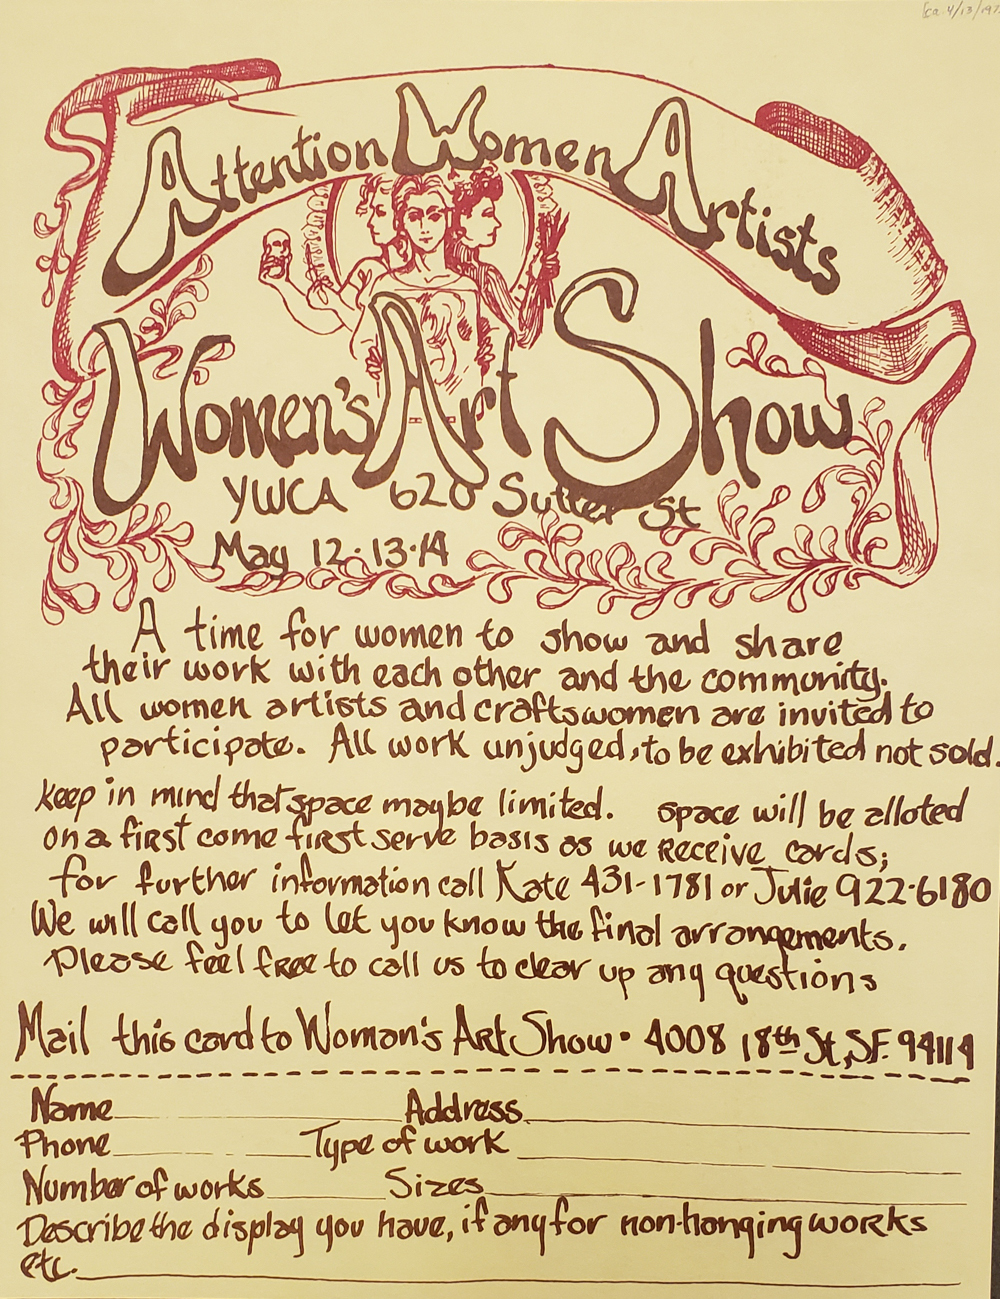 ca. 4/13/197
Attention Women Artists
Women's Art Show
YWCA 620 Sutter St
May 12·13·14
A time for women to show and share
their work with each other and the community.
All women artists and craftswomen are invited to
participate. All work unjudged, to be exhibited not sold.
keep in mind that space maybe limited. space will be alloted
on a first come first serve basis as we receive cards;
for further information call Kate 431-1781 or Julie 922-6180
We will call you to let you know the final arrangements.
Please feel free to call us to clear up any questions
Mail this card to Woman's Art Show · 4008 18th St, SF. 94114
Name Address
Phone Type of work
Number of works Sizes
Describe the display you have, if any for non-hanging works
etc.